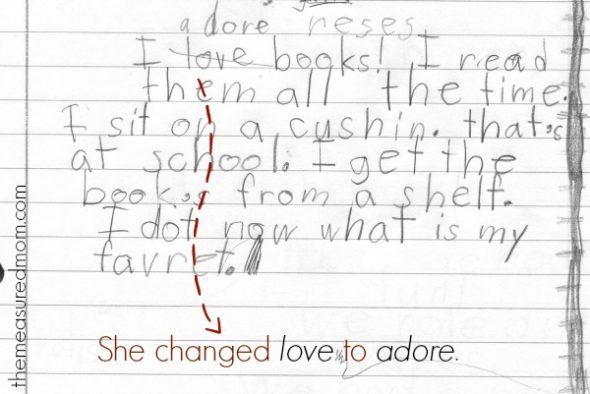 adore reses
I love books! I read
them all the time.
I sit on a cushin. that's
at school. I get the
book,s from a shelf.
I dot now what is my
favret.
She changed love to adore.
themeasuredmom.com